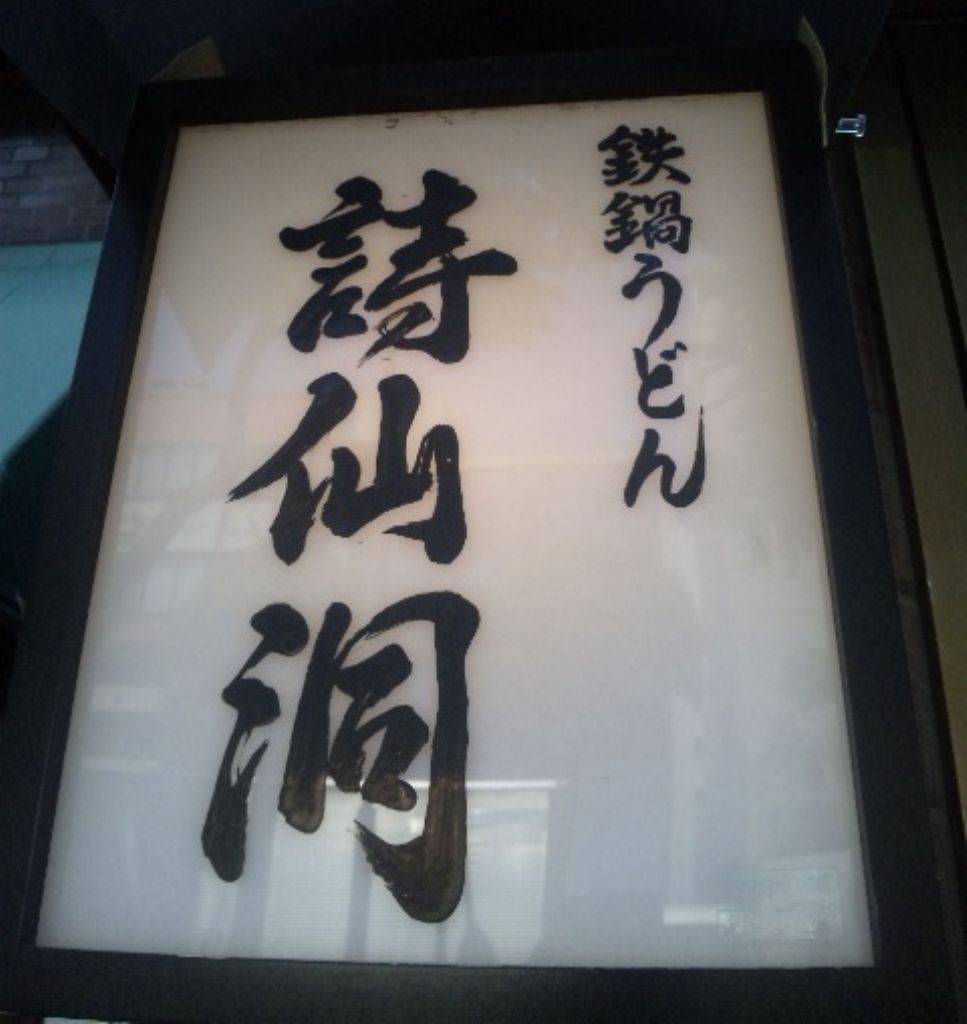 鉄鍋うどん
詩仙洞